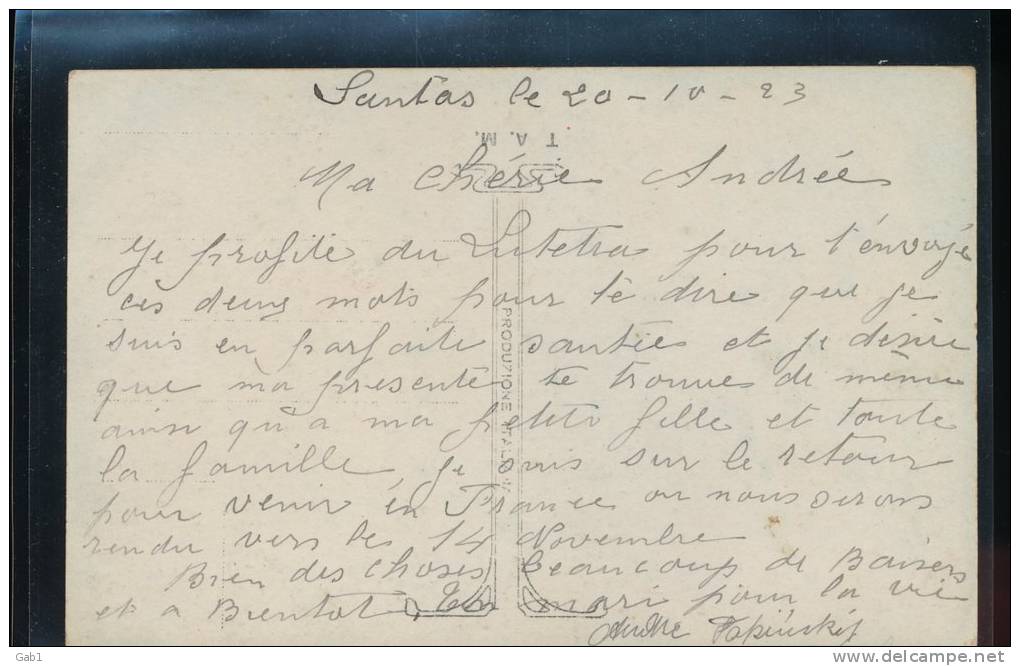 Santos le 20-10-23
T. A. M.
Ma chérie Andrée
Je profite du Lutetia pour t'envoyé
ces deux mots pour té dire que je
suis en parfaite santée et je désire
que ma presente te trouve de même
ainsi qu'a ma petite fille et toute
la famille je suis sur le retour
pour venir én France ou nous serons
rendu vers les 14 Novembre
Bien des choses beaucoup de Baisers
et a Bientot, Ton mari pour la vie
André
PRODUZIONE ITALO
Gab1
www.delcampe.net